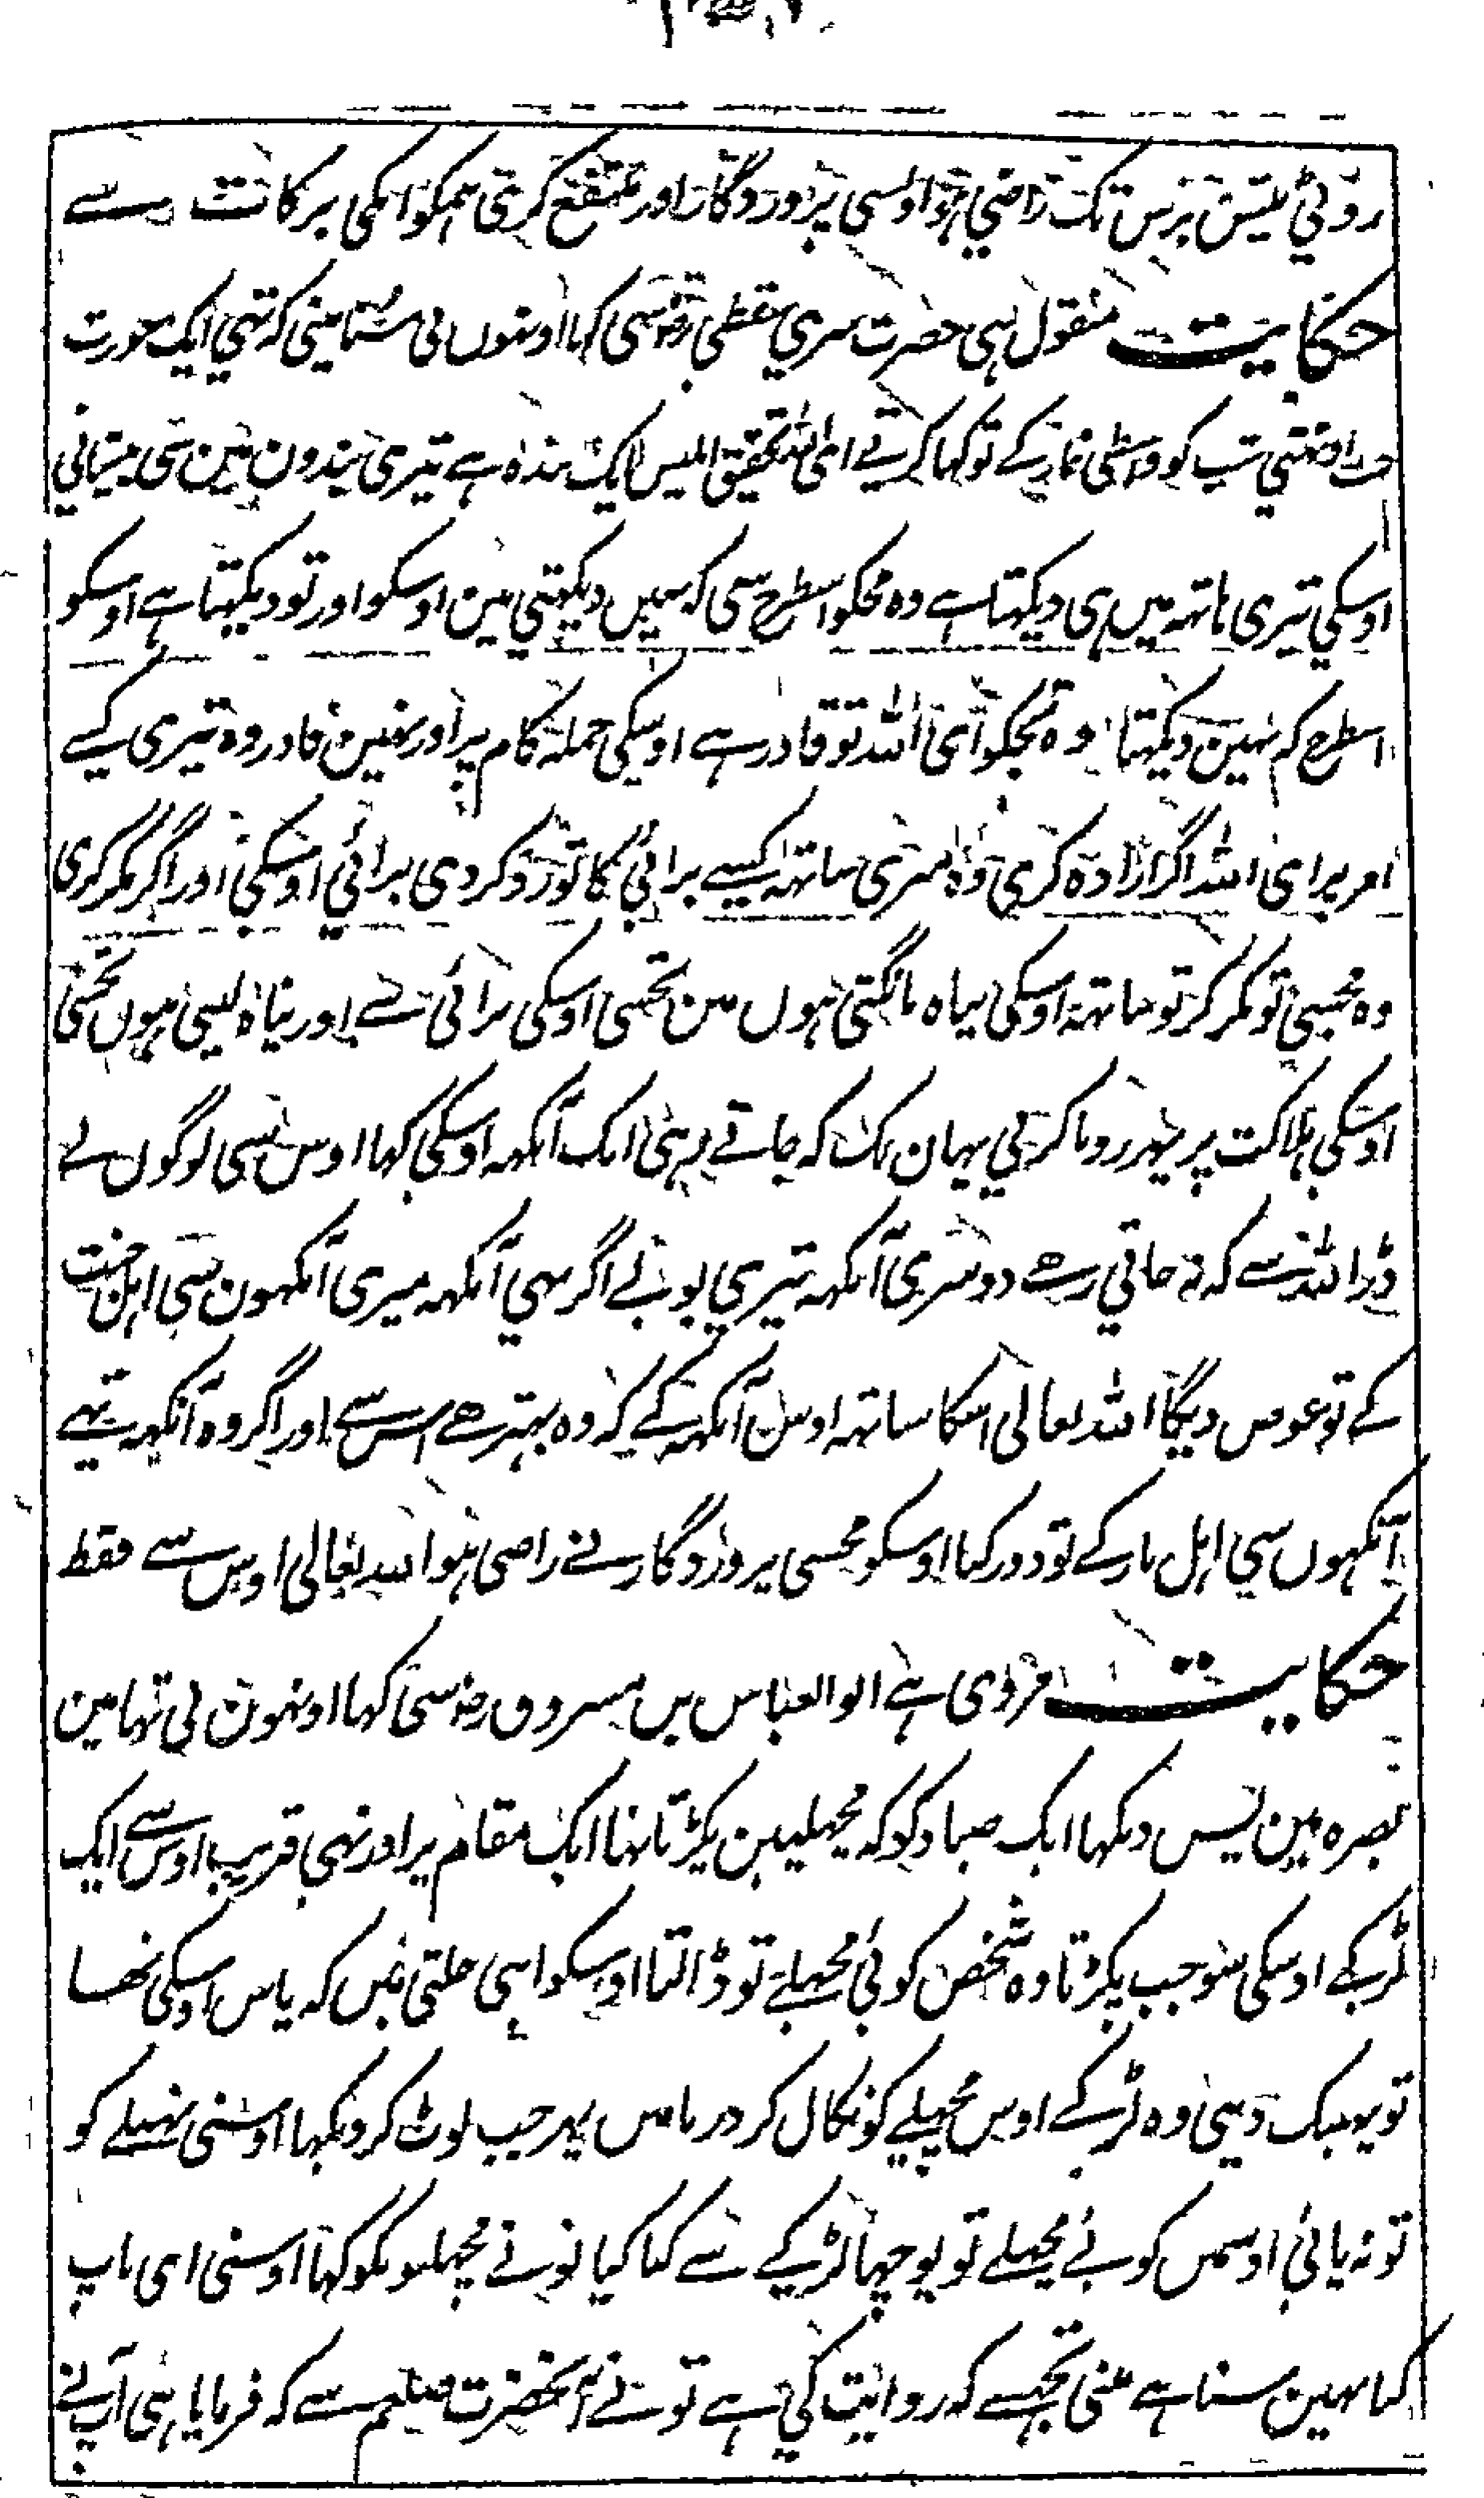 روتی تیس برس تک راضی ہو اوسی پروردگار اور متمتع کری ہمکو انکی برکات سے
حکایت منقول ہی حضرت سری سقطی رضہ سی کہا اونہوں نی سنا مینی کہ تہی ایک عورت
جب اوٹھتی شب کو واسطی نماز کے تو کہا کرتے ای اللہ تحقیق ابلیس ایک بندہ ہے تیری بندون مین سی پیشانی
اوسکی تیری ہاتہ میں ہی دیکہتا ہے وہ مجکو اسطرح سی کہ نہیں دیکہتی مین اوسکو اور تو دیکہتا ہے اوسکو
اسطرح کہ نہین دیکہتا وہ تجکو ای اللہ تو قادر ہے اوسکی جملہ کام پر اور نہین قادر وہ تیری کسے
امر پر ای اللہ اگر ارادہ کری وہ میری ساتہہ کسے برائی کا تو رد کر دی برائی اوسکی اور اگر مکر کری
وہ مجہسی تو مکر کر تو ساتہہ اوسکی پناہ مانگتی ہوں مین تجہسی اوسکی برائی سے اور پناہ لیتی ہوں تجہسی
اوسکی ہلاکت پر پہر رویا کرتی یہان تک کہ جاتے رہی ایک آنکہہ اوسکی کہا اوس سی لوگوں نے
ڈر اللہ سے کہ نہ جاتی رہے دوسری آنکہہ تیری بولے اگر ہی آنکہہ میری آنکہون سی اہل جنت
کے تو عوض دیگا اللہ تعالی اسکا ساتہہ اوس آنکہہ کے کہ وہ بہتر ہے اس سے اور اگر وہ آنکہہ ہے
آنکہوں سی اہل نار کے تو دور کیا اوسکو مجہسی پروردگار نے راضی ہو اللہ تعالی اوس سے فقط
حکایت مروی ہے ابو العباس بن مسروق رضہ سی کہا اونہون نی تہا مین
بصرہ مین پس دیکہا ایک صیاد کو کہ مچہلیین پکڑتا تہا ایک مقام پر اور تہی قریب اوس سے ایک
لڑکے اوسکی سو جب پکڑتا وہ شخص کوئی مچہلے تو ڈالتا اوسکو اپنی تہیلی میں کہ پاس اوسکی تہا
تو پہینک دیتی وہ لڑکے اوس مچہلے کو نکال کر دریا میں پہر جب لوٹ کر دیکہا اوسنی تہیلے کو
تو نہ پائی اوسمیں کوئے مچہلے تو پوچہا لڑکے سے کیا کیا تونے مچہلیونکو کہا اوسنی ای باپ
کیا نہین سنا ہے مینی تجہسے کہ روایت کی ہے تو نے آنحضرت صلعم سے کہ فرمایا ہی آپ نے